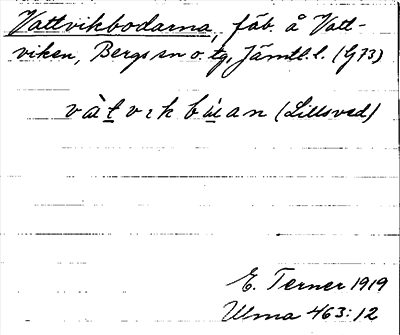 Vattvikbodarna, fäb. å Vatt-
viken, Bergs sn o. tg, Jämtl. l. (G73)
(Lillsved)
E. Terner 1919
Ulma 463:12